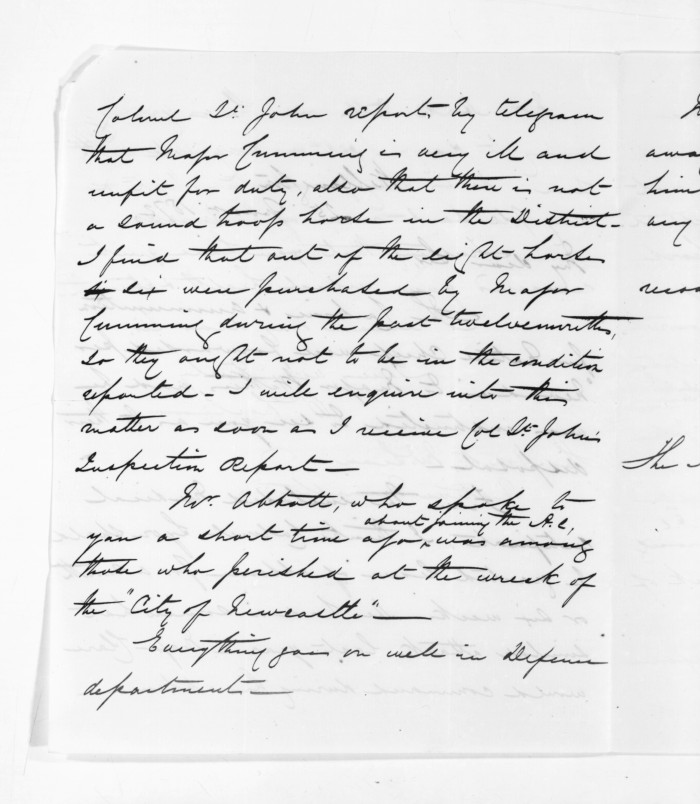 Colonel St. John reports by telegram
that Major Cumming is very ill and
unfit for duty, also that there is not
a sound troop horse in the District -
I find that out of the eight horses
six were purchased by Major
Cumming during the past twelvemonths,
so they ought not to be in the condition
reported - I will enquire into this
matter as soon as I receive Col St. John's
Inspection Report -
Mr. Abbott, who spoke to
you a short time ago, about joining the A.C, was among
those who perished at the wreck of
the "City of Newcastle" -
Everything goes on well in Defence
department -
away
him
any
The